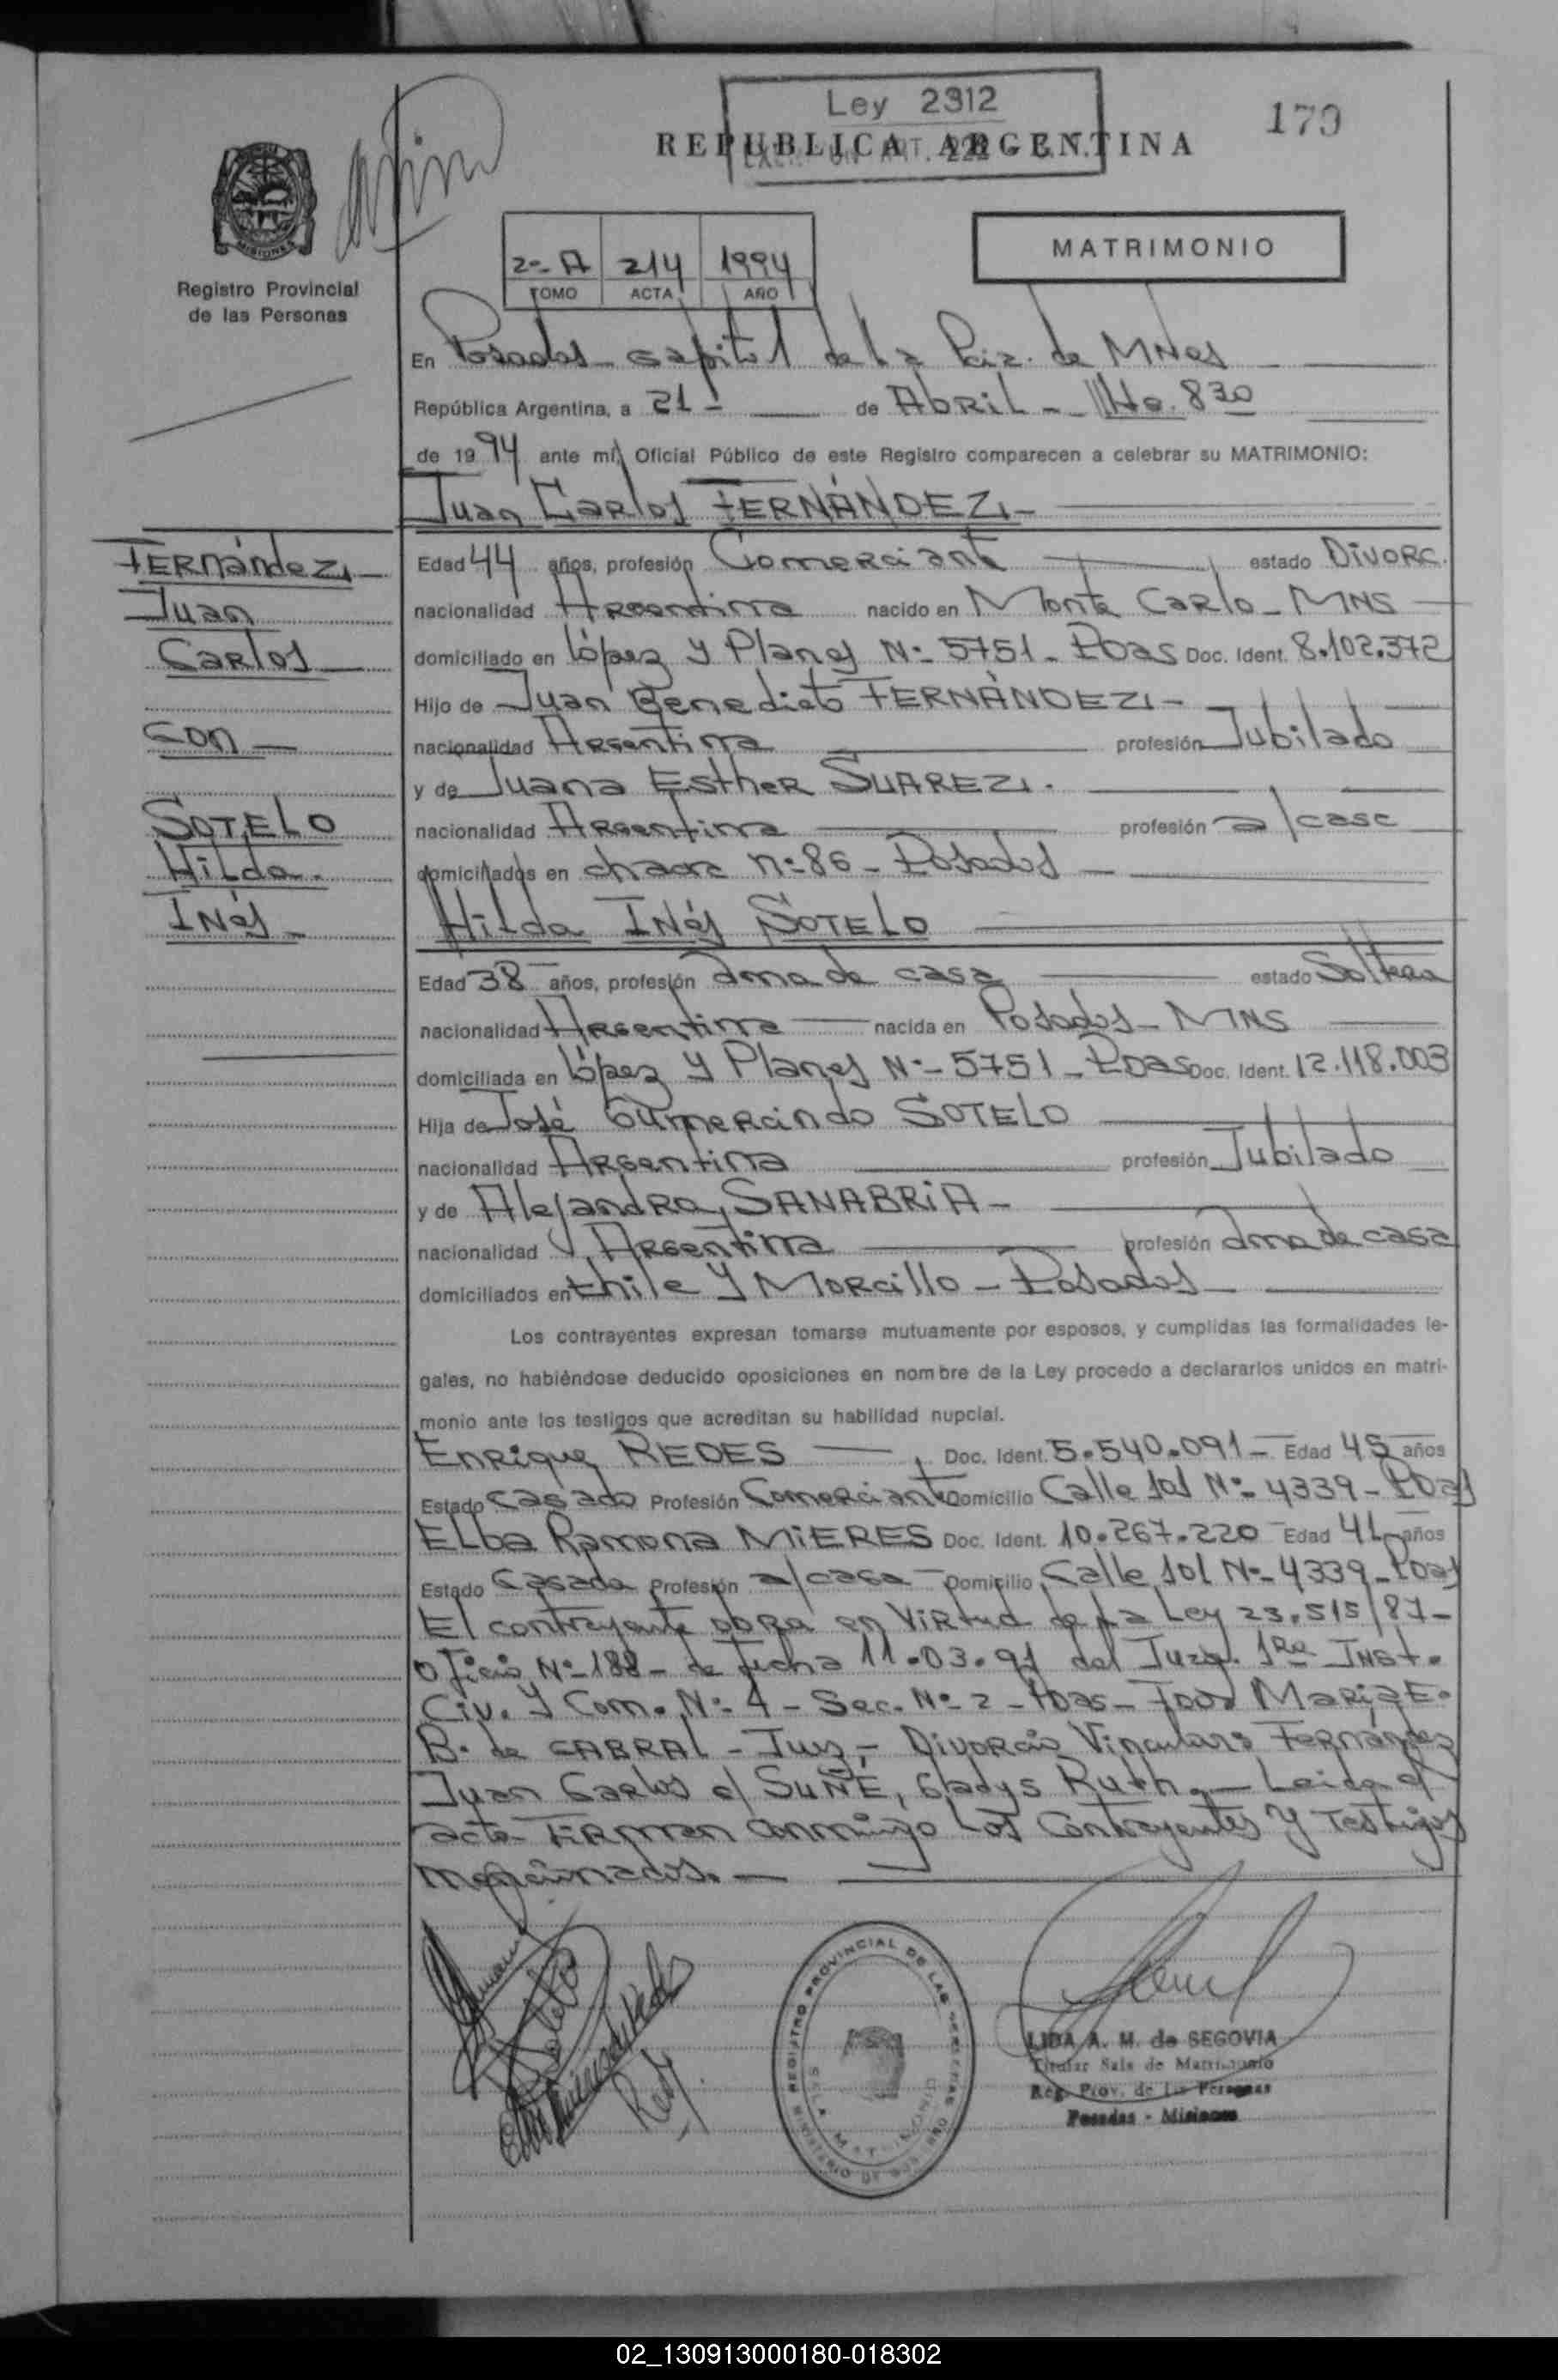 Ley 2312
REPUBLICA ARGENTINA
179
MISIONES
Registro Provincial
de las Personas
2º A 214 1994
TOMO ACTA AÑO
MATRIMONIO
En Posadas capital de la Pcia. de MNes
República Argentina, a 21 - de Abril - Ho. 830
de 1994 ante mí, Oficial Público de este Registro comparecen a celebrar su MATRIMONIO:
Juan Carlos FERNÁNDEZ
Fernández
Juan
Carlos
con
SOTELO
Hilda
Inés
Edad 44 años, profesión Comerciante estado Divorc.
nacionalidad Argentina nacido en Monte Carlo - MNS
domiciliado en López y Planes Nº 5751 - Pdas Doc. Ident. 8.102.372
Hijo de Juan Benedicto FERNÁNDEZ
nacionalidad Argentina profesión Jubilado
y de Juana Esther SUAREZ.
nacionalidad Argentina profesión a/casa
domiciliados en chacra nº 86 - Posadas
Hilda Inés SOTELO
Edad 38 años, profesión ama de casa estado Soltera
nacionalidad Argentina nacida en Posadas - MNS
domiciliada en López y Planes Nº 5751 - Pdas Doc. Ident. 12.118.003
Hija de José Gumercindo SOTELO
nacionalidad Argentina profesión Jubilado
y de Alejandra SANABRIA
nacionalidad Argentina profesión ama de casa
domiciliados en Chile y Morcillo - Posadas
Los contrayentes expresan tomarse mutuamente por esposos, y cumplidas las formalidades le-
gales, no habiéndose deducido oposiciones en nombre de la Ley procedo a declararlos unidos en matri-
monio ante los testigos que acreditan su habilidad nupcial.
Enrique REDES Doc. Ident. 5.540.091 - Edad 45 años
Estado Casado Profesión Comerciante Domicilio Calle 101 Nº 4339 - Pdas
Elba Ramona MIERES Doc. Ident. 10.267.220 Edad 41 años
Estado Casada Profesión a/casa Domicilio Calle 101 Nº 4339 - Pdas
El contrayente obra en virtud de la Ley 23.515/87 -
oficio Nº 188 - de fecha 11.03.91 del Juzg. 1ra Inst.
Civ. y Com. Nº 4 - Sec. Nº 2 - Pdas - María E.
B. de CABRAL - Juez - Divorcio Vincular: Fernández
Juan Carlos c/ SUÑÉ, Gladys Ruth. - Leida el
acta Firman conmigo Los Contrayentes y Testigos
mencionados.
REGISTRO PROVINCIAL DE LAS PERSONAS
MINISTERIO DE GOBIERNO
SALA MATRIMONIO
LIDA A. M. de SEGOVIA
Titular Sala de Matrimonio
Reg. Prov. de las Personas
Posadas - Misiones
02_130913000180-018302